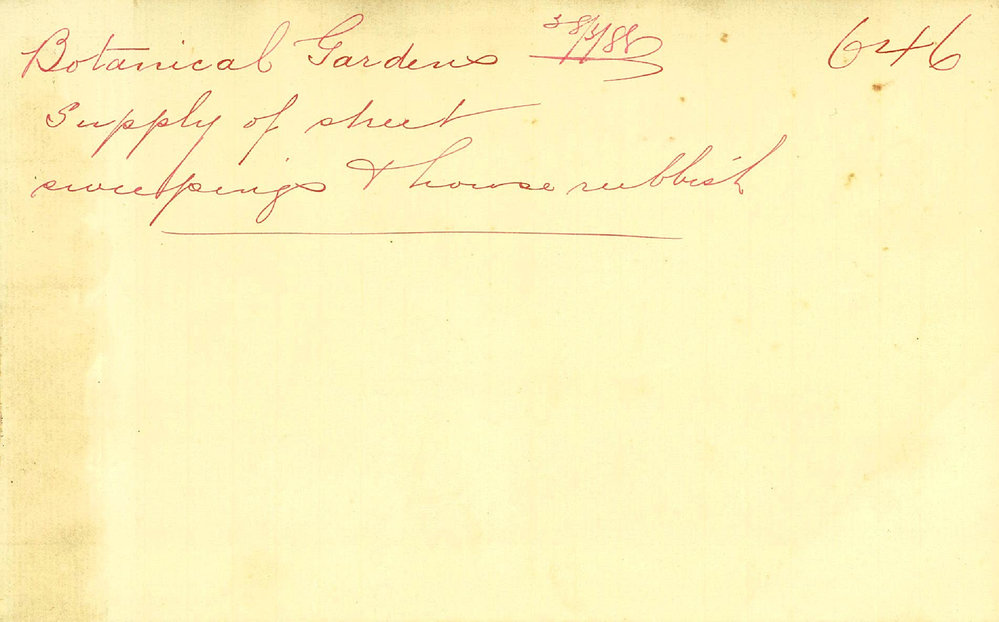 Botanical Gardens 646
Supply of street
sweepings & house rubbish